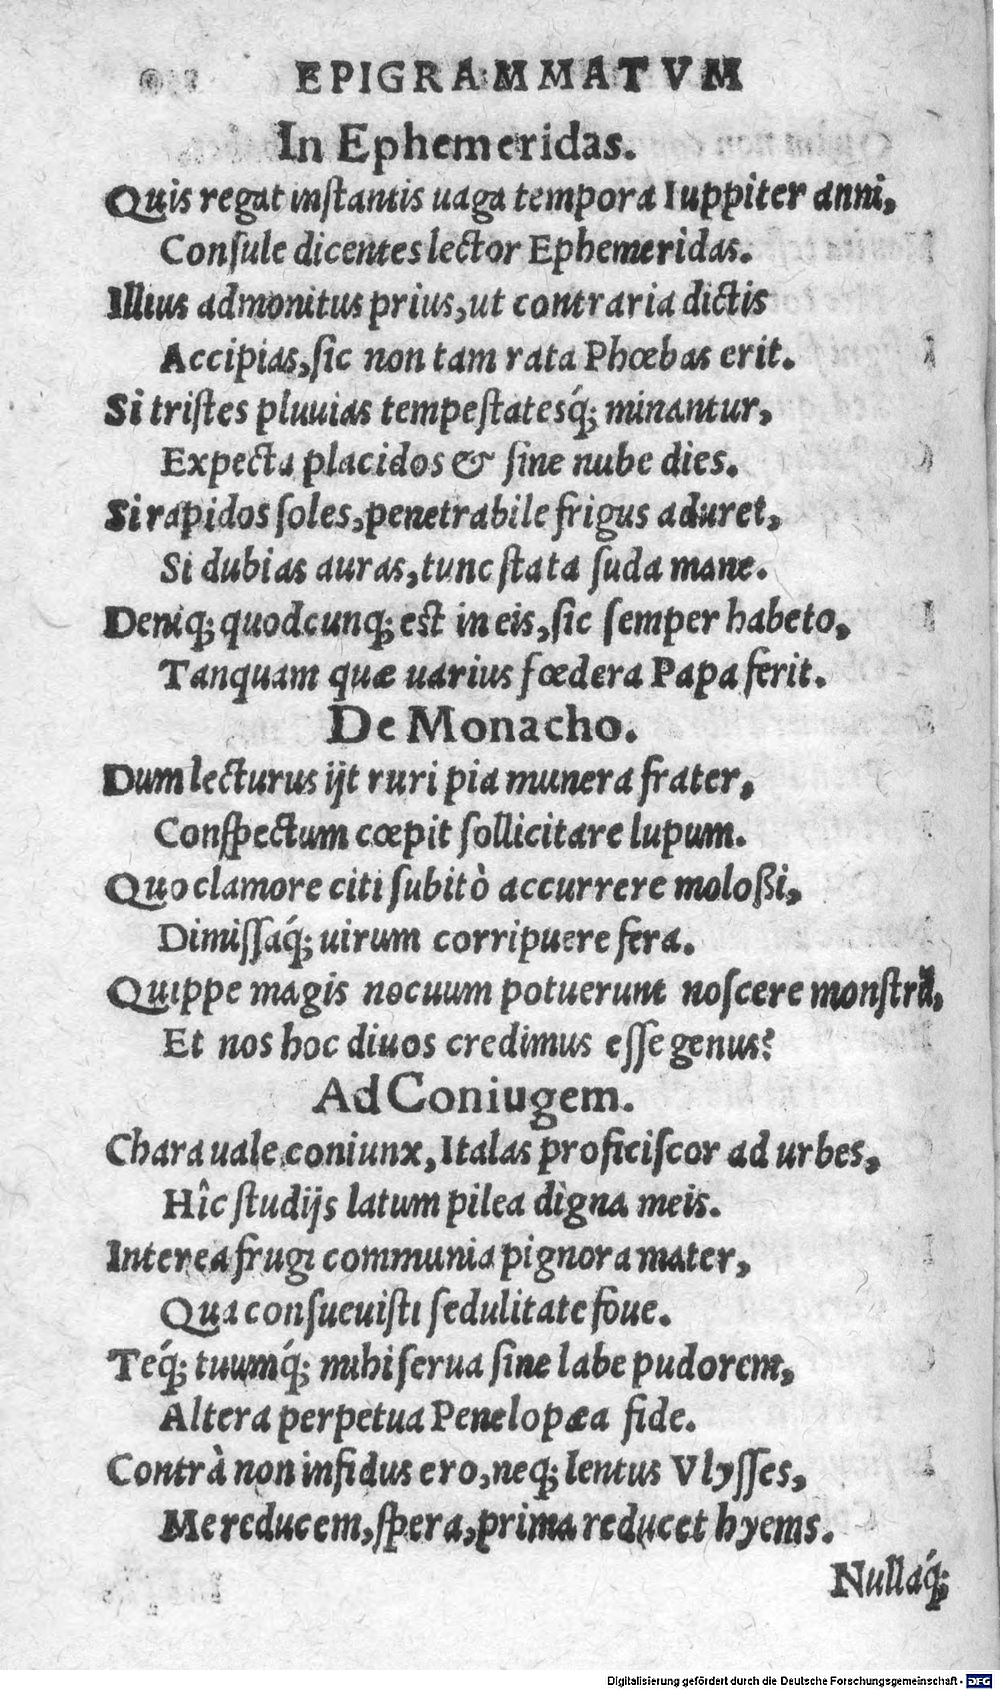 EPIGRAMMATVM
In Ephemeridas.
Quis regat instantis uaga tempora Iuppiter anni,
Consule dicentes lector Ephemeridas.
Illius admonitus prius, ut contraria dictis
Accipias, sic non tam rata Phœbas erit.
Si tristes pluuias tempestatesq́; minantur,
Expecta placidos & sine nube dies.
Si rapidos soles, penetrabile frigus aduret,
Si dubias auras, tunc stata suda mane.
Deniq; quodcunq; est in eis, sic semper habeto,
Tanquam quæ uarius fœdera Papa ferit.
De Monacho.
Dum lecturus ijt ruri pia munera frater,
Conspectum cœpit sollicitare lupum.
Quo clamore citi subitò accurrere moloßi,
Dimissaq́; uirum corripuere fera.
Quippe magis nocuum potuerunt noscere monstrũ,
Et nos hoc diuos credimus esse genus?
Ad Coniugem.
Chara uale coniunx, Italas proficiscor ad urbes,
Hîc studijs latum pilea digna meis.
Interea frugi communia pignora mater,
Qua consueuisti sedulitate foue.
Teq́; tuumq́; mihi serua sine labe pudorem,
Altera perpetua Penelopæa fide.
Contrà non infidus ero, neq; lentus Vlysses,
Me reducem, spera, prima reducet hyems.
Nullaq́;
Digitalisierung gefördert durch die Deutsche Forschungsgemeinschaft - DFG